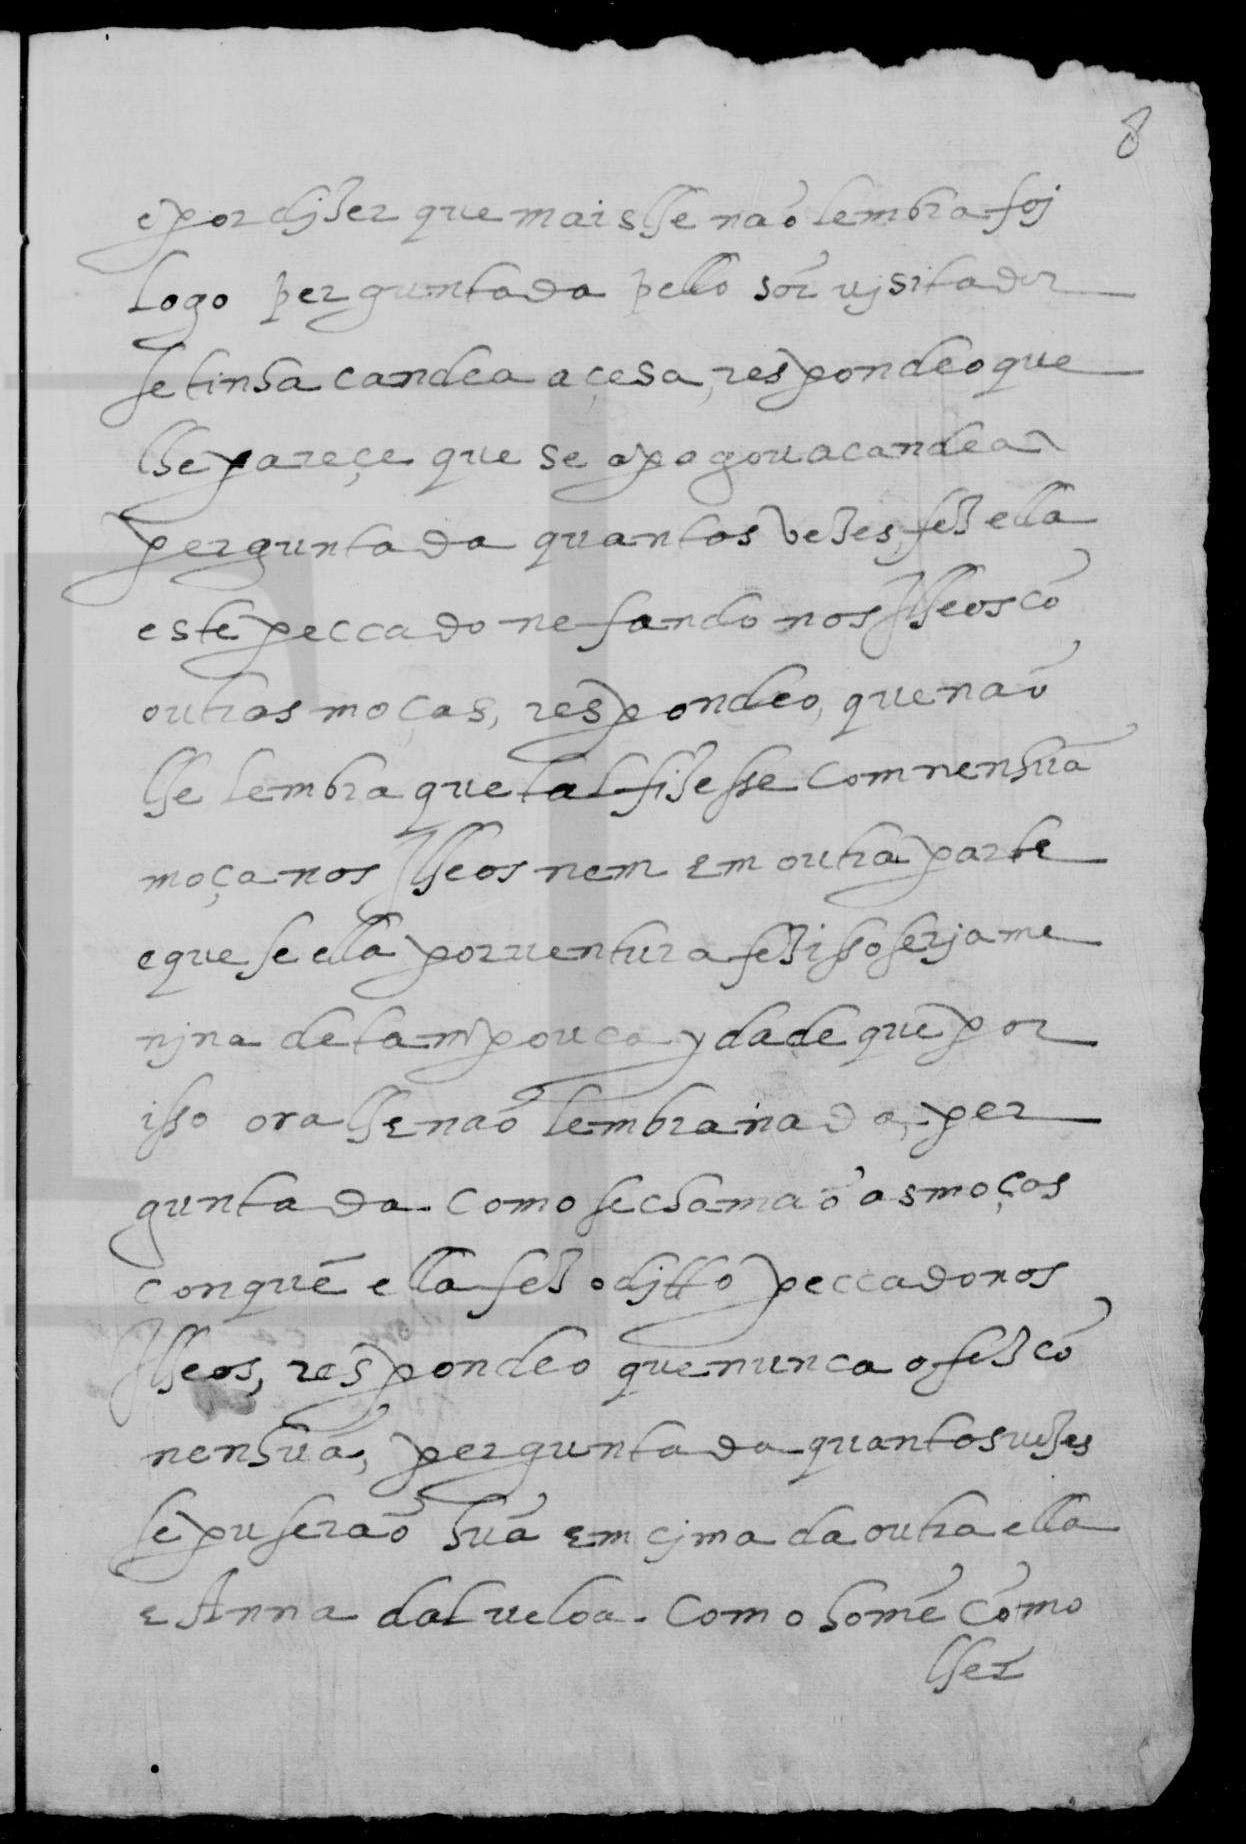 8
e por dizer que mais lhe não lembra foj
logo perguntada pello sõr vjsitador
se tinha candea açesa, respondeo que
lhe pareçe que se apagou a candea
perguntada quantas vezes, fez ella
este peccado nefando nos Ilheos cõ
outras moças, respondeo, que não
lhe lembra que tal fizesse com nenhũa
moça nos Ilheos nem em outra parte
e que se ella porventura fez isso serja me
njna de tam pouca ydade que por
isso ora lhe não lembra nada, per
guntada. Como se chamaõ as moças
con quẽ ella fez o djtto peccado nos
Ilheos, respondeo que nunca o fez cõ
nenhũa, perguntada quantas vezes
se puseraõ hũa em cjma da outra ella
e Anna dalveloa. Como homẽ cõ mo
lher